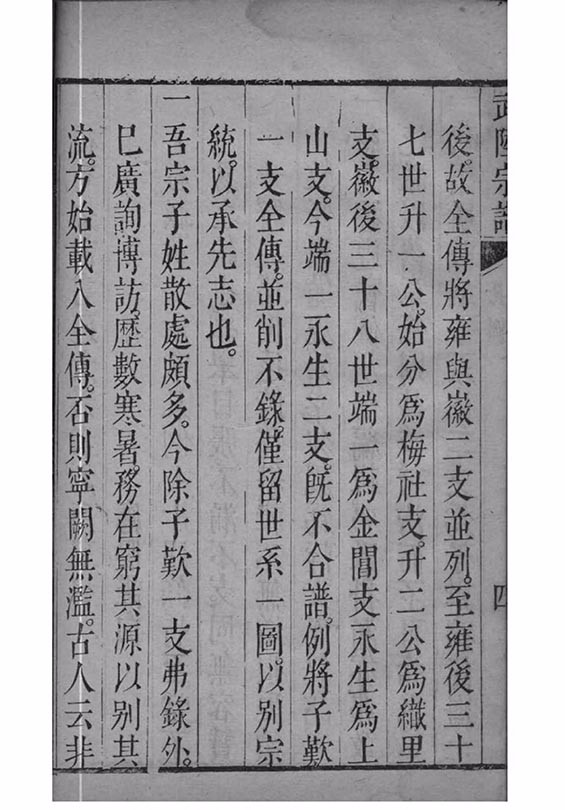 武陵宗譜
四
後。故全傳將雍與徽二支並列。至雍後三十
七世升一公。始分爲梅社支。升二公爲織里
支。徽後三十八世端一爲金閶支。永生爲上
山支。今端一永生二支。旣不合譜。例將子歎
一支全傳。並削不錄。僅留世系一圖。以別宗
統。以承先志也。
一吾宗子姓散處頗多。今除子歎一支弗錄外。
巳廣詢博訪。歴數寒暑。務在窮其源以別其
流。方始載入全傳。否則寧闕無濫。古人云非